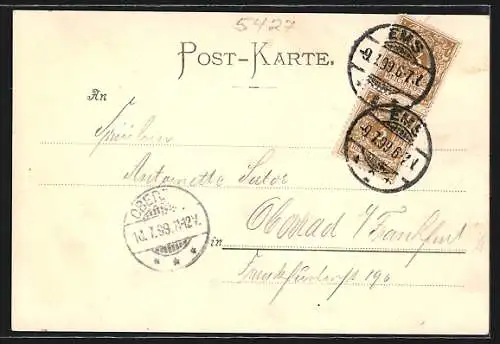 5427
POST-KARTE.
EMS
-9.7.99.6-7.N.
EMS
-9.7.99.6-7.N.
An
Fräulein
Antoinette Sutor
OBER
10.7.99.11-12V.
in Oberrad i/Frankfurt